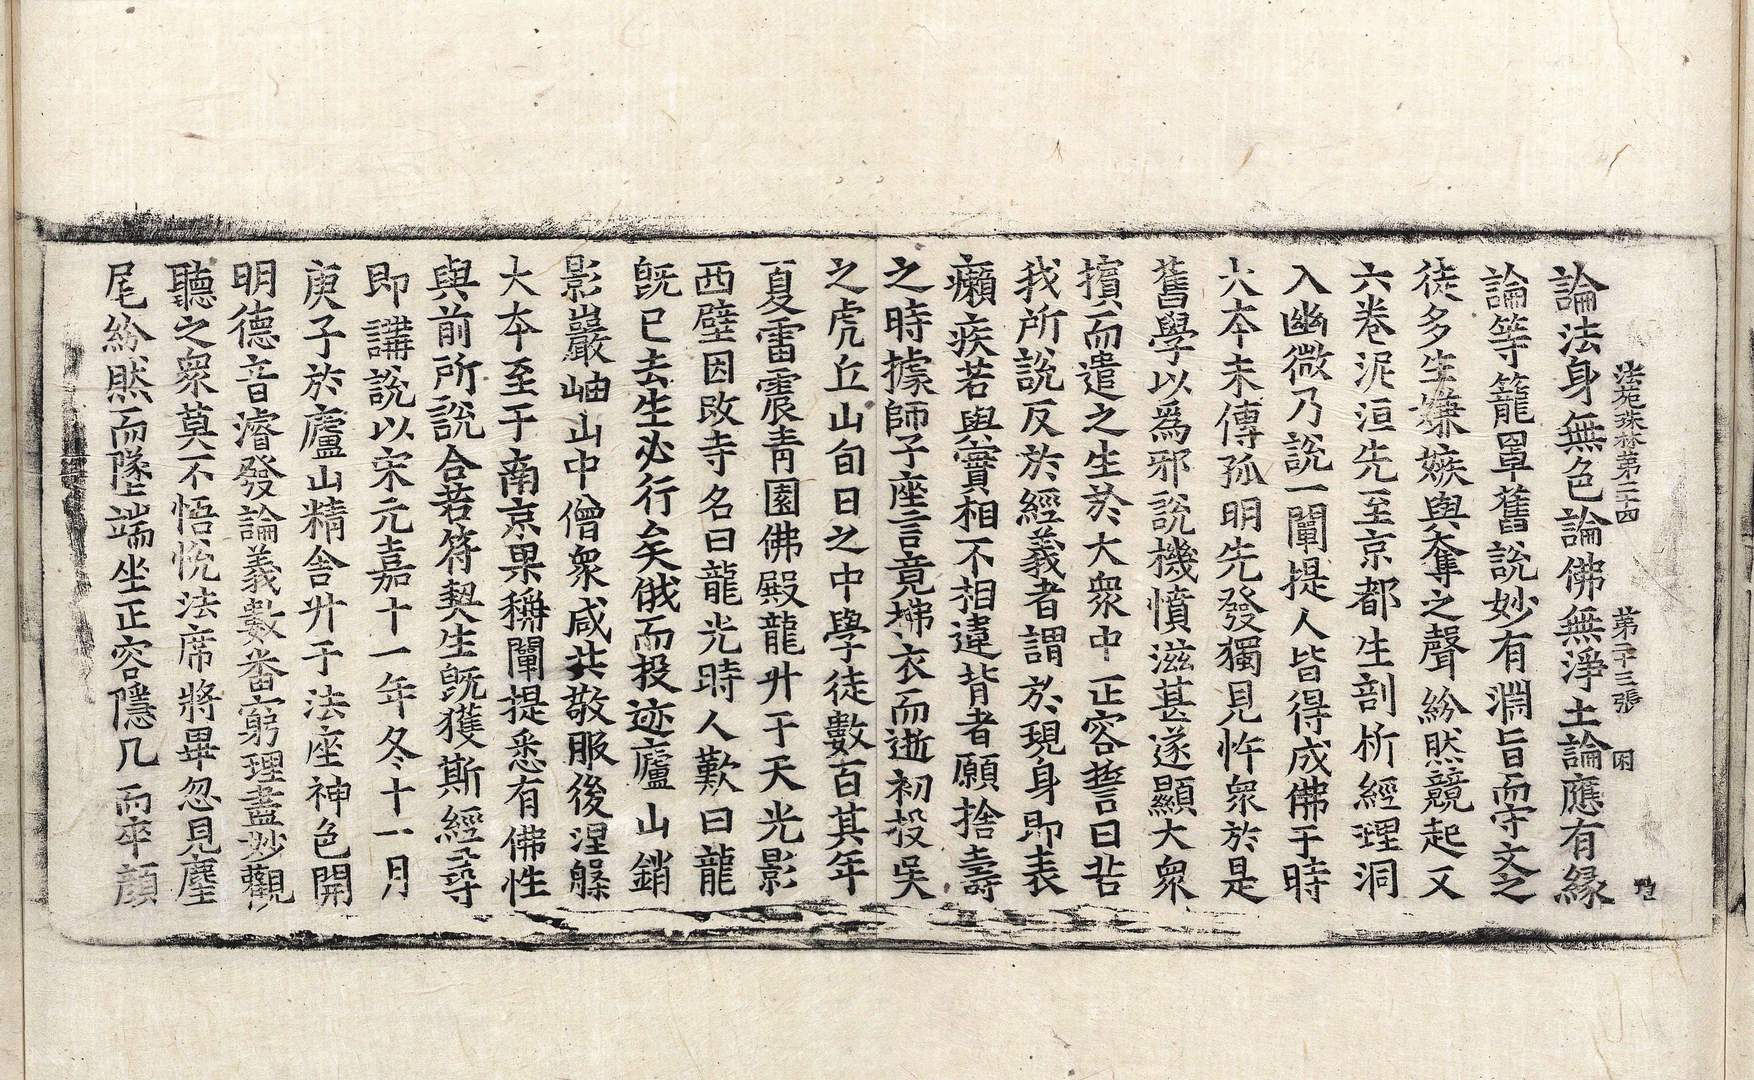 法苑珠林第二十四　第二十三張　困
論法身無色論佛無淨土論應有緣
論等籠罩舊說妙有淵旨而守文之
徒多生嫌嫉與奪之聲紛然競起又
六卷泥洹先至京都生剖析經理洞
入幽微乃說一闡提人皆得成佛于時
大本未傳孤明先發獨見忤衆於是
舊學以爲邪說機憤滋甚遂顯大衆
擯而遣之生於大衆中正容誓曰若
我所說反於經義者謂於現身即表
癩疾若與實相不相違背者願捨壽
之時據師子座言竟拂衣而逝初投吳
之虎丘山旬日之中學徒數百其年
夏雷震青園佛殿龍升于天光影
西壁因改寺名曰龍光時人歎曰龍
旣已去生必行矣俄而投迹廬山銷
影巖岫山中僧衆咸共敬服後涅槃
大本至于南京果稱闡提悉有佛性
與前所說合若符契生旣獲斯經尋
即講說以宋元嘉十一年冬十一月
庚子於廬山精舍升于法座神色開
明德音濬發論義數番窮理盡妙觀
聽之衆莫不悟悅法席將畢忽見麈
尾紛然而墜端坐正容隱几而卒顏